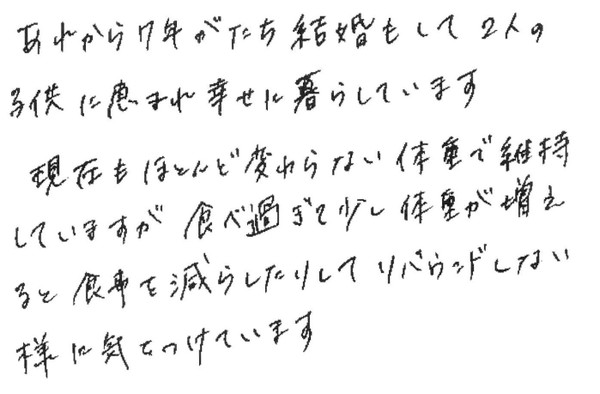 あれから7年がたち結婚もして2人の
子供に恵まれ幸せに暮らしています
現在もほとんど変わらない体重で維持
していますが食べ過ぎて少し体重が増え
ると食事を減らしたりしてリバウンドしない
様に気をつけています